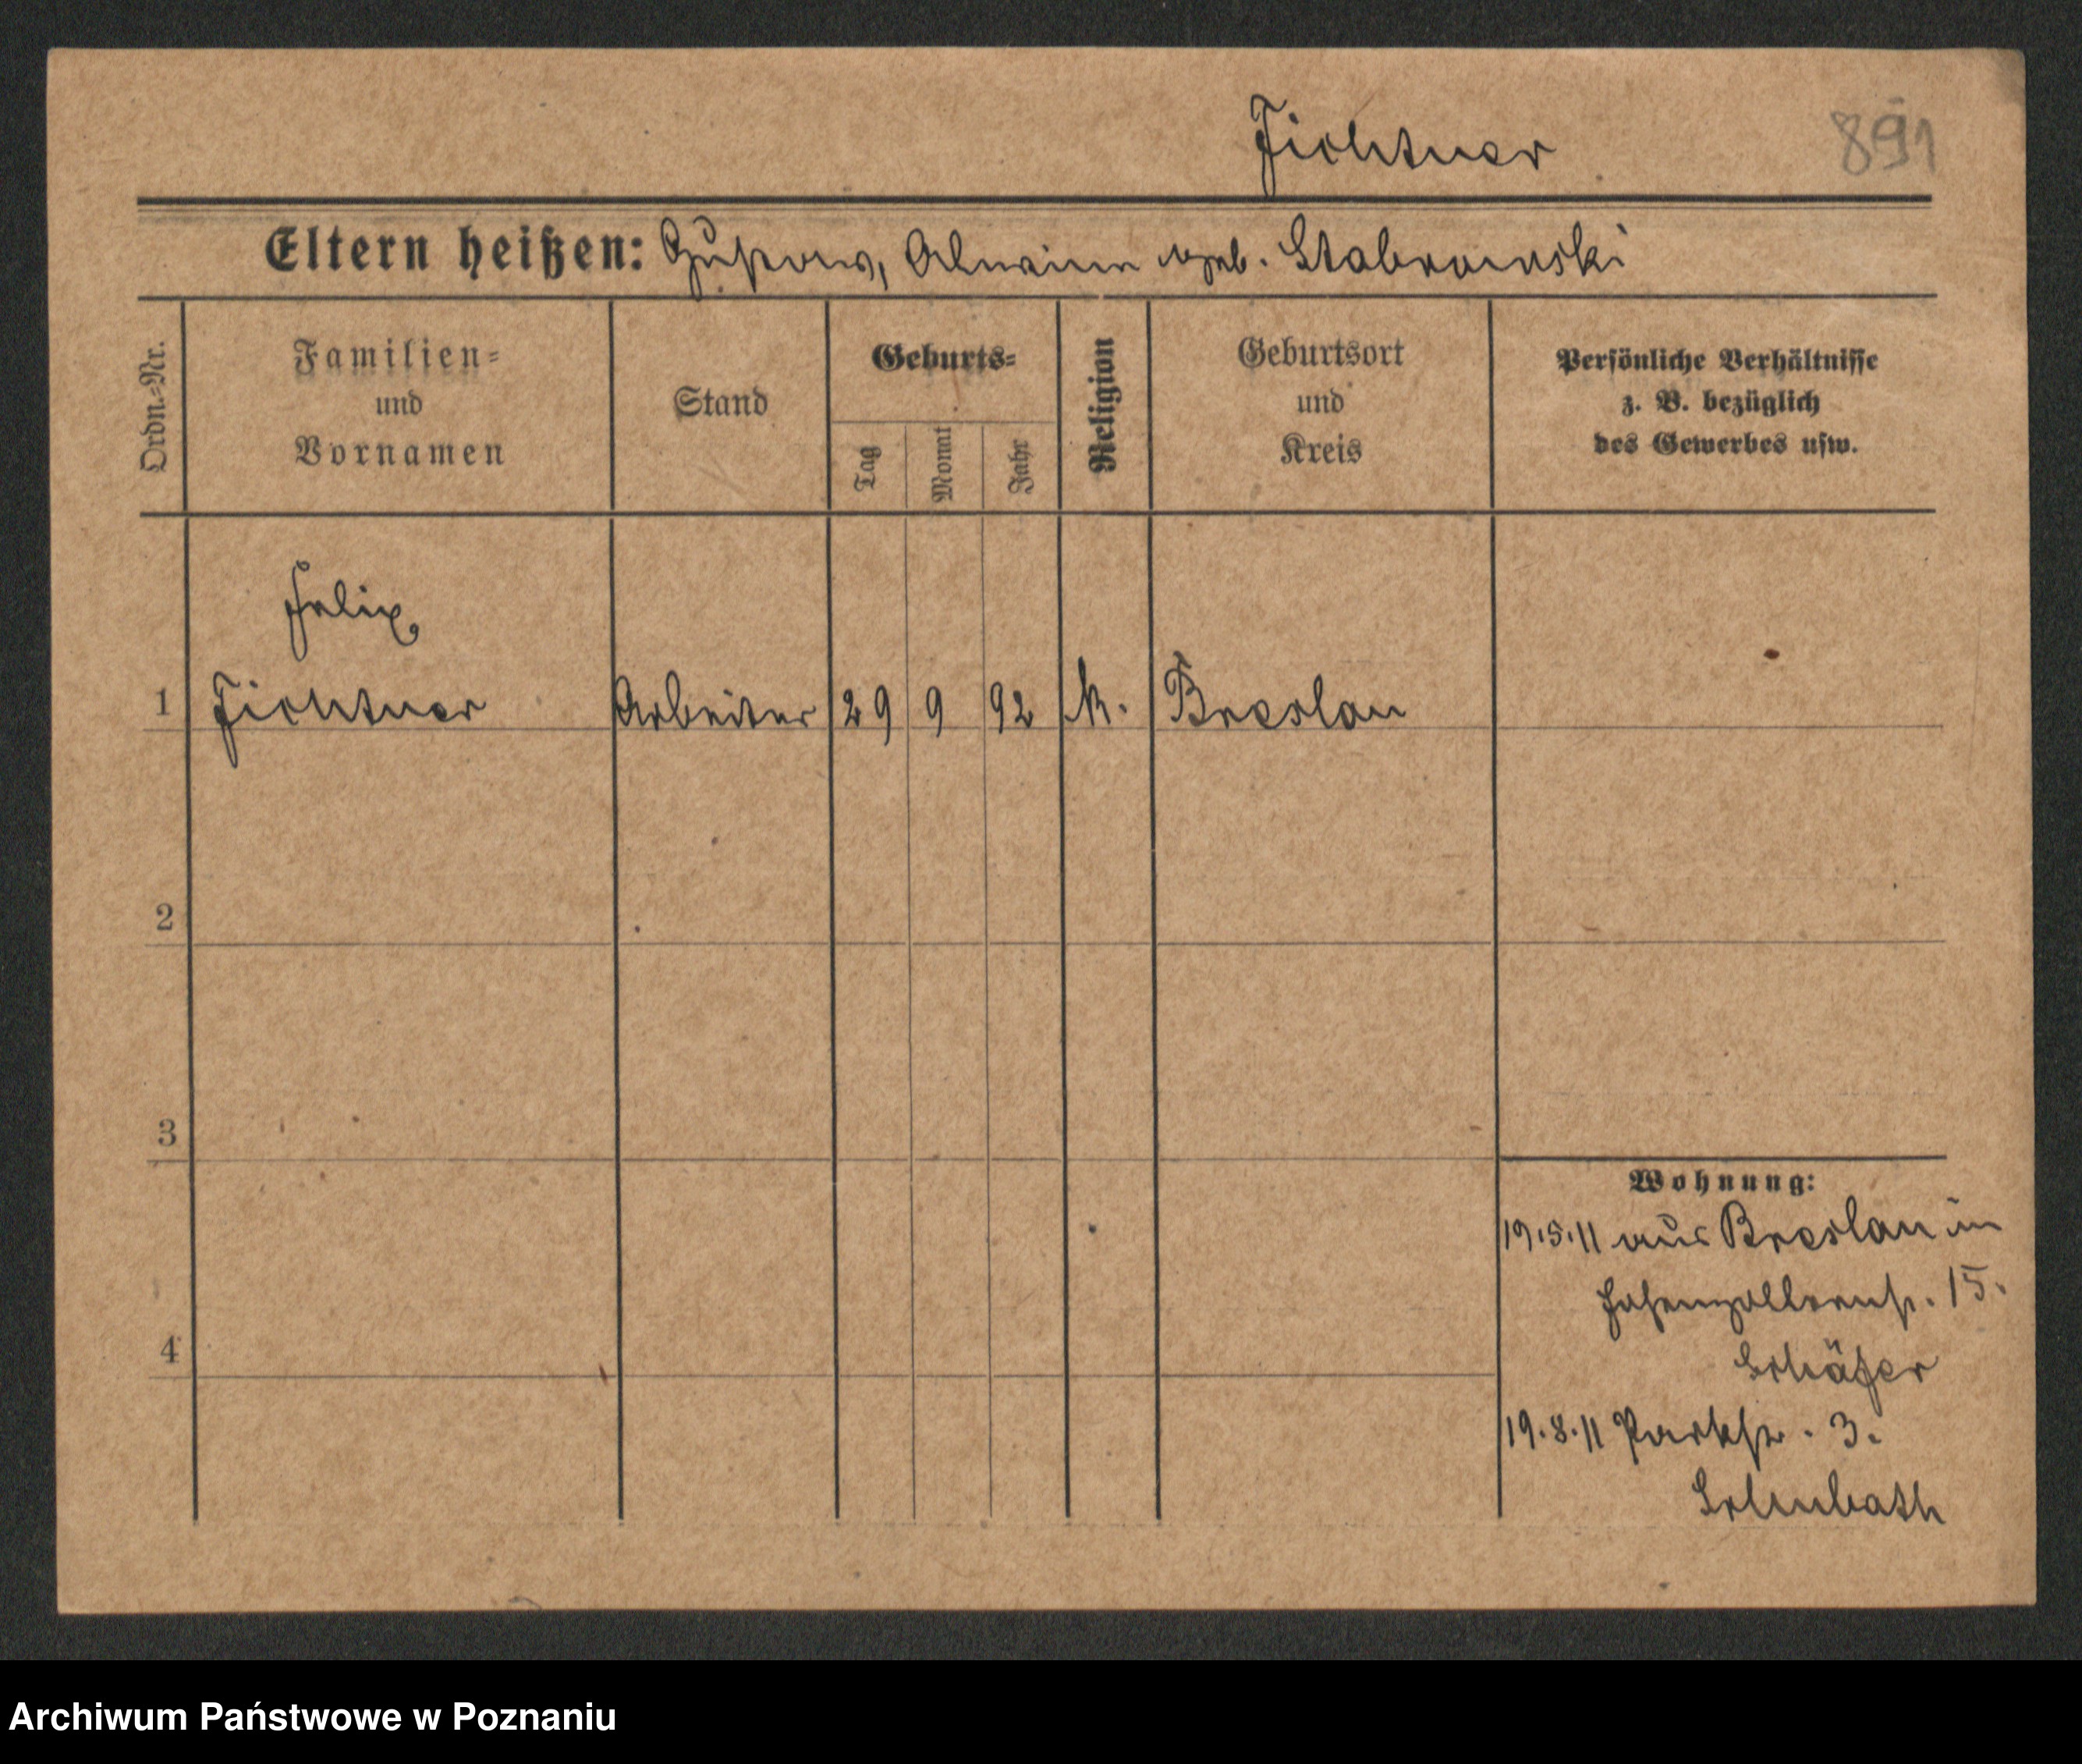 Fichtner
891
Eltern heißen: Gustav, Alwine geb. Stabrowski
Ordn.=Nr.
Familien=
und
Vornamen
Stand
Geburts=
Tag
Monat
Jahr
Religion
Geburtsort
und
Kreis
Persönliche Verhältnisse
z. B. bezüglich
des Gewerbes usw.
Felix,
1 Fichtner Arbeiter 29 9 92 k. Breslau
2
3
4
Wohnung:
19.5.11 aus Breslau in
Hohenzollernstr. 15.
Schäfer
19.8.11 Parkstr. 3.
Archiwum Państwowe w Poznaniu